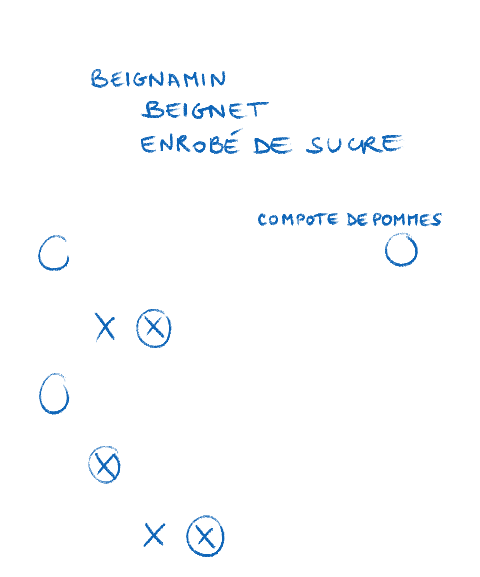 BEIGNAMIN
BEIGNET
ENROBÉ DE SUCRE
COMPOTE DE POMMES